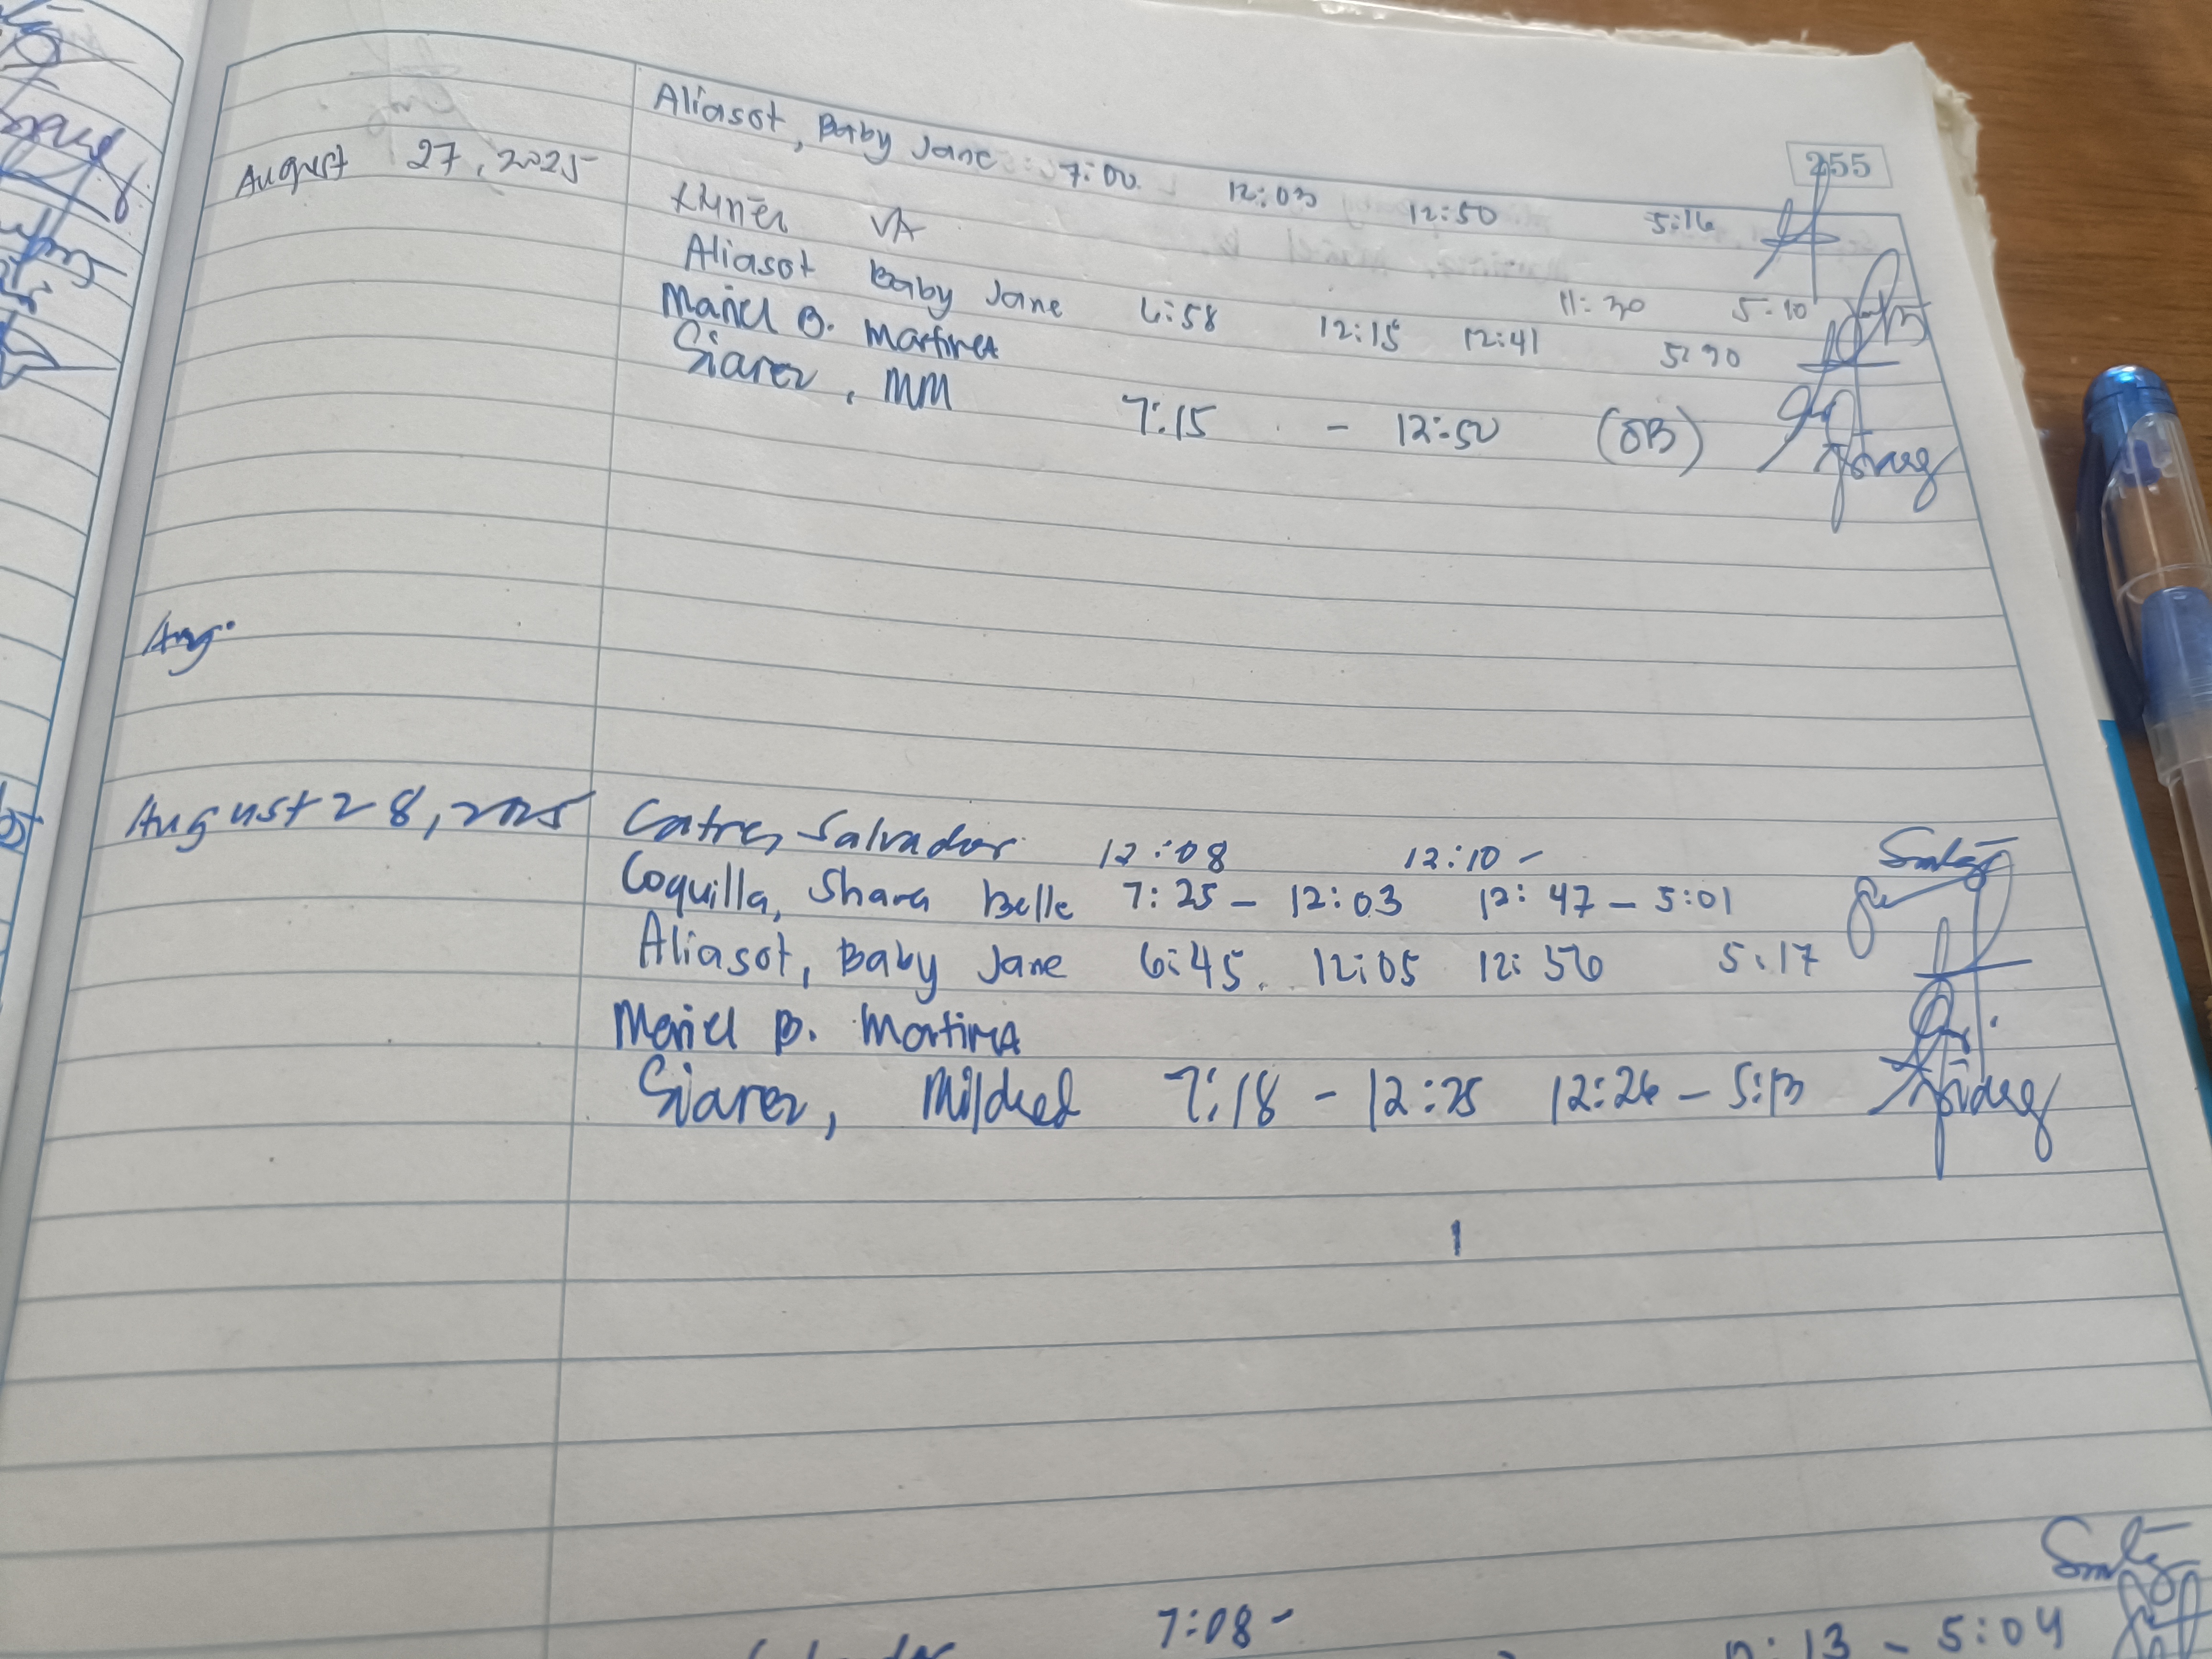 255
Aliasot, Baby Jane 7:00 12:03 12:50 5:16
August 27, 2025
VA 11:30 5:10
Aliasot Baby Jane 6:58 12:15 12:41 5:30
Mariel B. Martinez
Siarez, MM 7:15 - 12:50 (OB)
Aug.
August 28, 2025 Catre, Salvador 12:08 12:10 -
Coquilla, Shara Belle 7:25 - 12:03 12:47 - 5:01
Aliasot, Baby Jane 6:45 12:05 12:56 5:17
Mariel B. Martinez
Siarez, Mildred 7:18 - 12:25 12:26 - 5:13
7:08 -
13 - 5:04